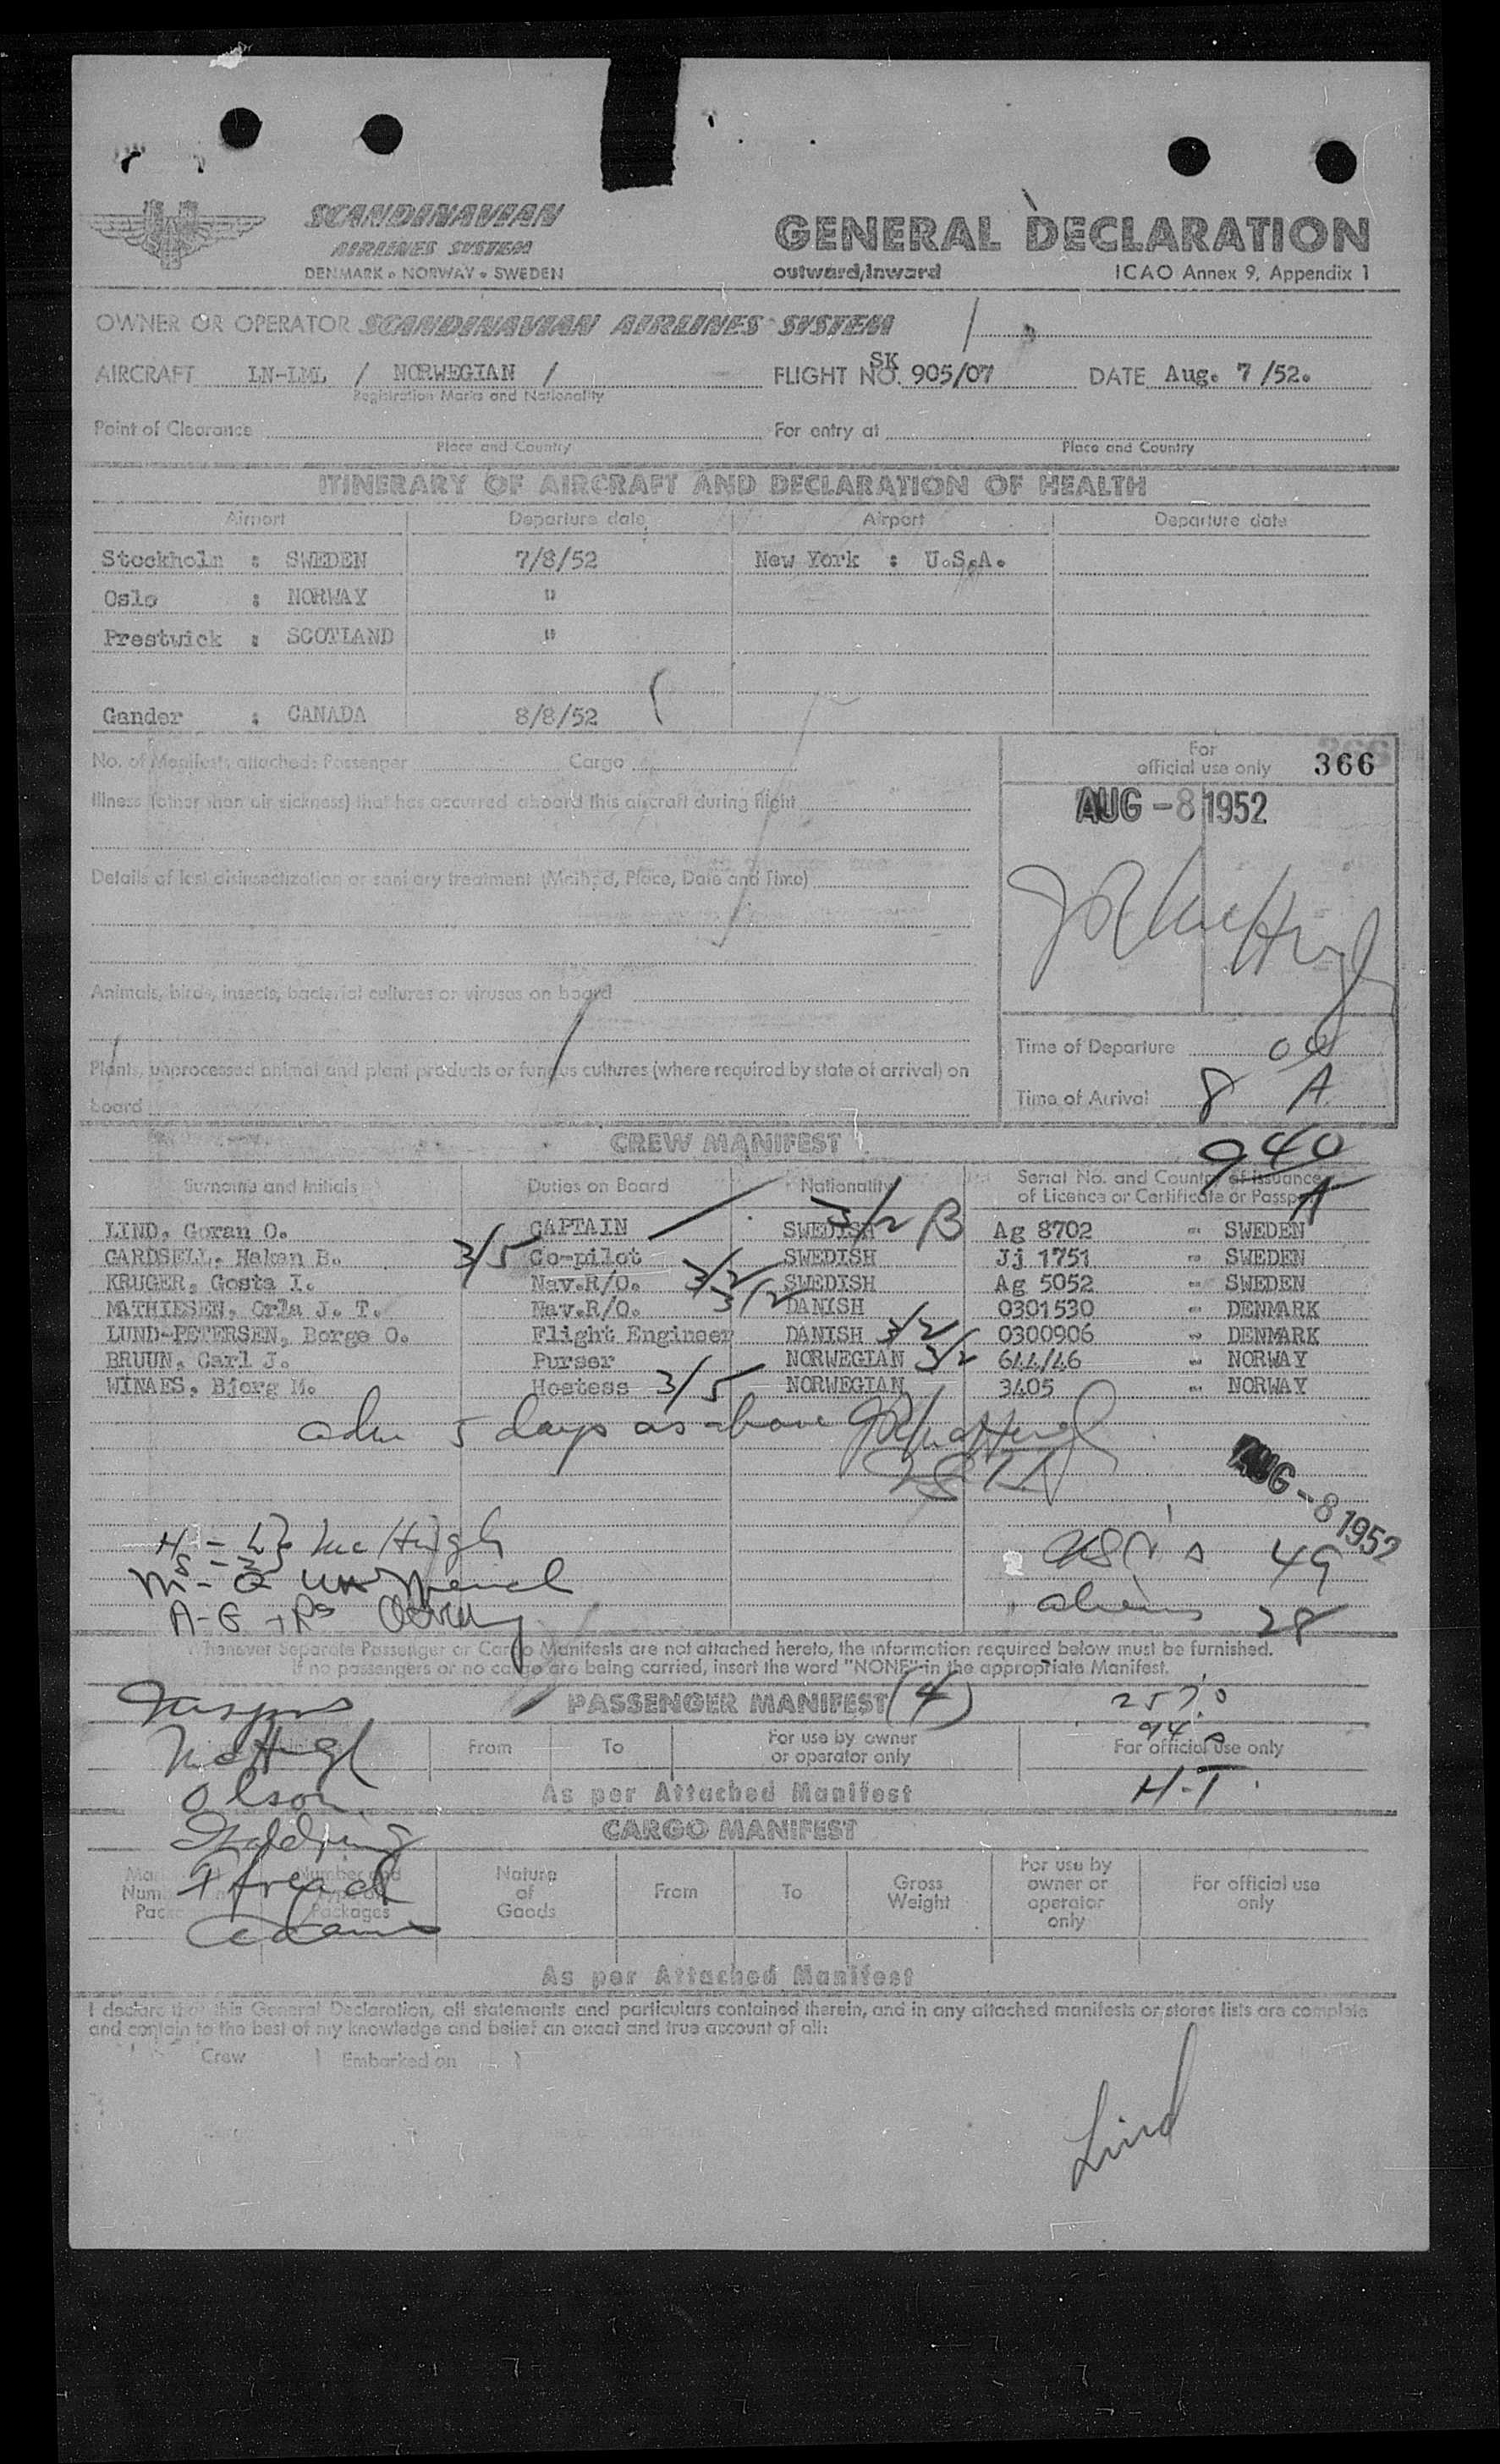 SCANDINAVIAN
AIRLINES SYSTEM
DENMARK • NORWAY • SWEDEN
GENERAL DECLARATION
outward/Inward ICAO Annex 9, Appendix 1
OWNER OR OPERATOR SCANDINAVIAN AIRLINES SYSTEM
AIRCRAFT LN-LML / NORWEGIAN / FLIGHT NO. SK 905/07 DATE Aug. 7 /52.
Registration Marks and Nationality
Point of Clearance For entry at
Place and Country Place and Country
ITINERARY OF AIRCRAFT AND DECLARATION OF HEALTH
Airport Departure date Airport Departure date
Stockholm : SWEDEN 7/8/52 New York : U.S.A.
Oslo : NORWAY "
Prestwick : SCOTLAND "
Gander : CANADA 8/8/52
No. of Manifests attached: Passenger Cargo
For
official use only 366
Illness (other than air sickness) that has occurred aboard this aircraft during flight
AUG -8 1952
Details of last disinsectization or sanitary treatment (Method, Place, Date and Time)
Animals, birds, insects, bacterial cultures or viruses on board
Time of Departure
Plants, unprocessed animal and plant products or fungus cultures (where required by state of arrival) on
board
Time of Arrival 8 A
940
A
CREW MANIFEST
Surname and Initials Duties on Board Nationality Serial No. and Country of Issuance
of Licence or Certificate or Passport
LIND, Goran O. CAPTAIN SWEDISH 3/2 B Ag 8702 - SWEDEN
CARDSELL, Hakan B. 3/5 Co-pilot SWEDISH Jj 1751 - SWEDEN
KRUGER, Gosta I. Nav.R/O. 3/2 SWEDISH Ag 5052 - SWEDEN
MATHIESEN, Orla J. T. Nav.R/O. 3/2 DANISH 0301530 - DENMARK
LUND-PETERSEN, Borge O. Flight Engineer DANISH 3/2 0300906 - DENMARK
BRUUN, Carl J. Purser NORWEGIAN 3/2 644/46 - NORWAY
WINAES, Bjorg M. Hostess 3/5 NORWEGIAN 3405 - NORWAY
adm 5 days as above
AUG -8 1952
McHugh
49
aliens 28
Whenever Separate Passenger or Cargo Manifests are not attached hereto, the information required below must be furnished.
If no passengers or no cargo are being carried, insert the word "NONE" in the appropriate Manifest.
PASSENGER MANIFEST (4)
McHugh
From To For use by owner
or operator only
For official use only
As per Attached Manifest
H-T
Olson
CARGO MANIFEST
Number and
Packages
Nature
of
Goods
From To Gross
Weight
For use by
owner or
operator
only
For official use
only
As per Attached Manifest
I declare that this General Declaration, all statements and particulars contained therein, and in any attached manifests or stores lists are complete
and contain to the best of my knowledge and belief an exact and true account of all:
Crew Embarked on
Lind